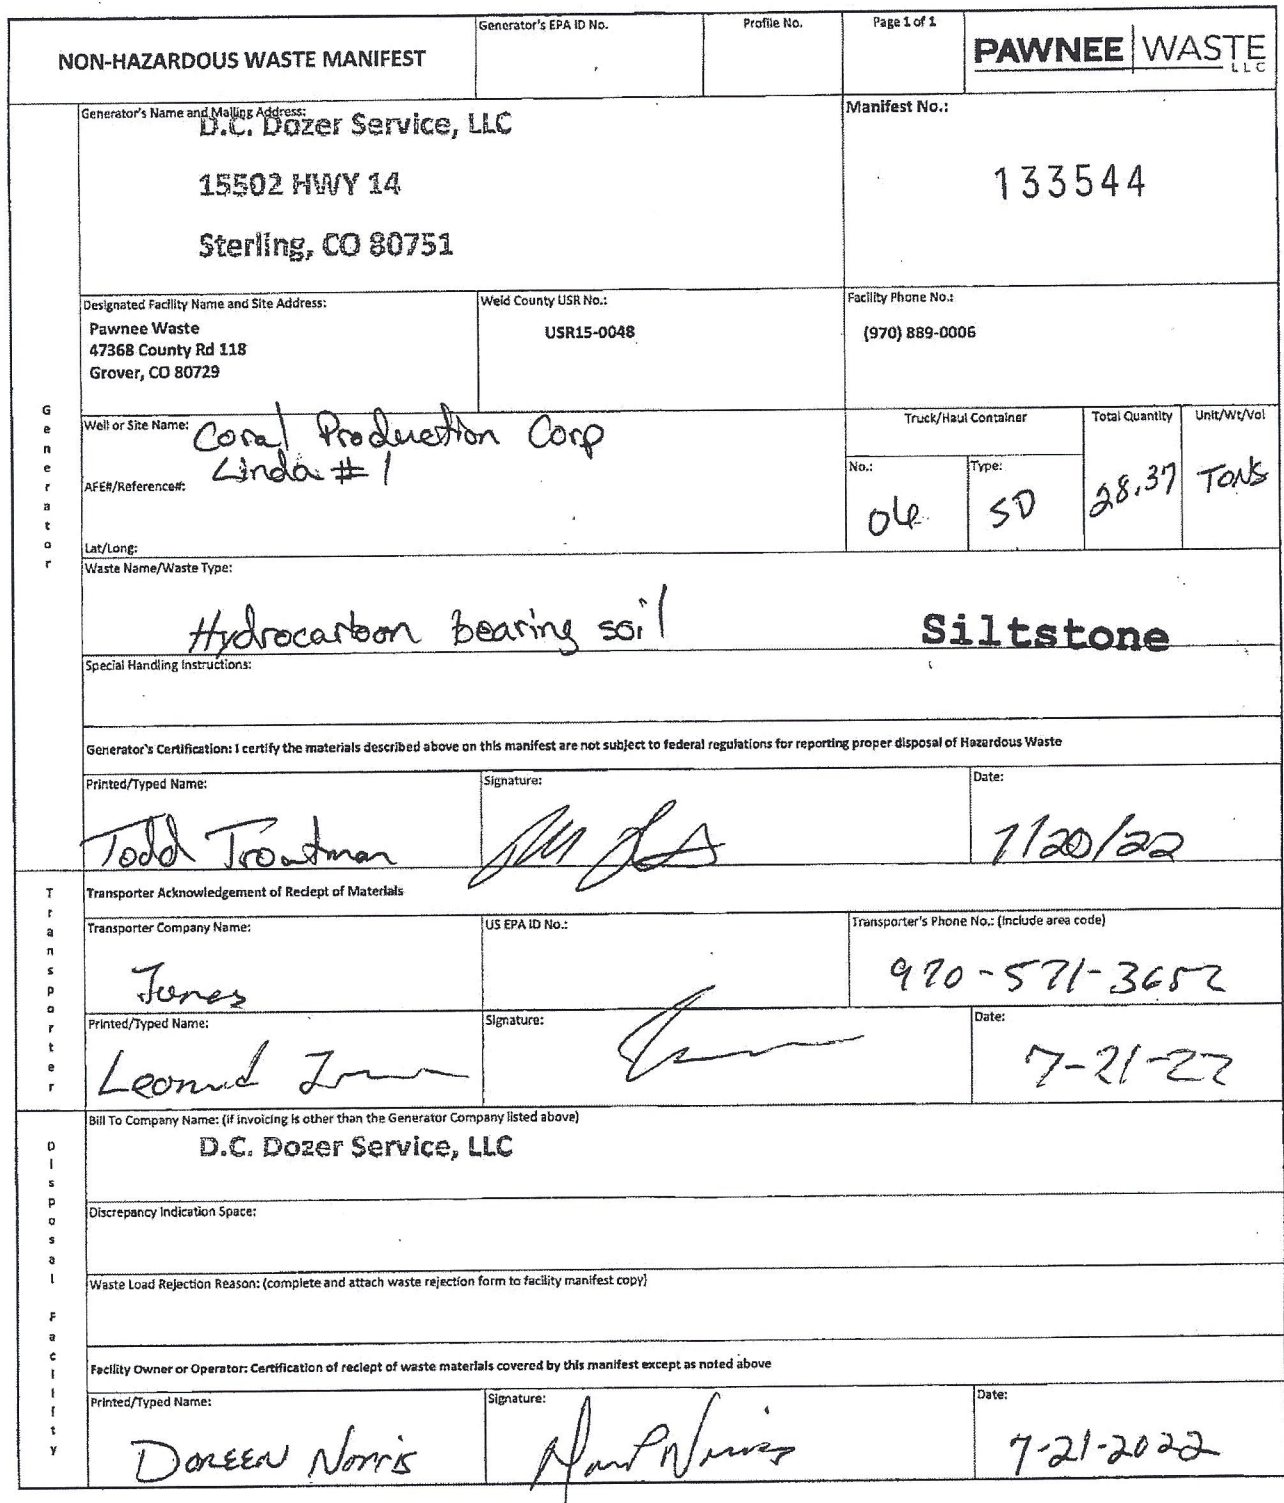 NON-HAZARDOUS WASTE MANIFEST
Generator's EPA ID No.
Profile No.
Page 1 of 1
PAWNEE WASTE
LLC
Generator's Name and Mailing Address:
D.C. Dozer Service, LLC
15502 HWY 14
Sterling, CO 80751
Manifest No.:
133544
Designated Facility Name and Site Address:
Pawnee Waste
47368 County Rd 118
Grover, CO 80729
Weld County USR No.:
USR15-0048
Facility Phone No.:
(970) 889-0006
Generator
Well or Site Name: Coral Production Corp
Linda #1
AFE#/Reference#:
Lat/Long:
Truck/Haul Container
No.:
Type:
SD
Total Quantity
28.37
Unit/Wt/Vol
TONS
Waste Name/Waste Type:
Hydrocarbon bearing soil
Siltstone
Special Handling Instructions:
Generator's Certification: I certify the materials described above on this manifest are not subject to federal regulations for reporting proper disposal of Hazardous Waste
Printed/Typed Name:
Todd Troutman
Signature:
Date:
7/20/22
Transporter
Transporter Acknowledgement of Reciept of Materials
Transporter Company Name:
US EPA ID No.:
Transporter's Phone No.: (include area code)
970-571-3652
Printed/Typed Name:
Signature:
Date:
7-21-22
Disposal Facility
Bill To Company Name: (if invoicing is other than the Generator Company listed above)
D.C. Dozer Service, LLC
Discrepancy Indication Space:
Waste Load Rejection Reason: (complete and attach waste rejection form to facility manifest copy)
Facility Owner or Operator: Certification of reciept of waste materials covered by this manifest except as noted above
Printed/Typed Name:
Doreen Norris
Signature:
Date:
7-21-2022